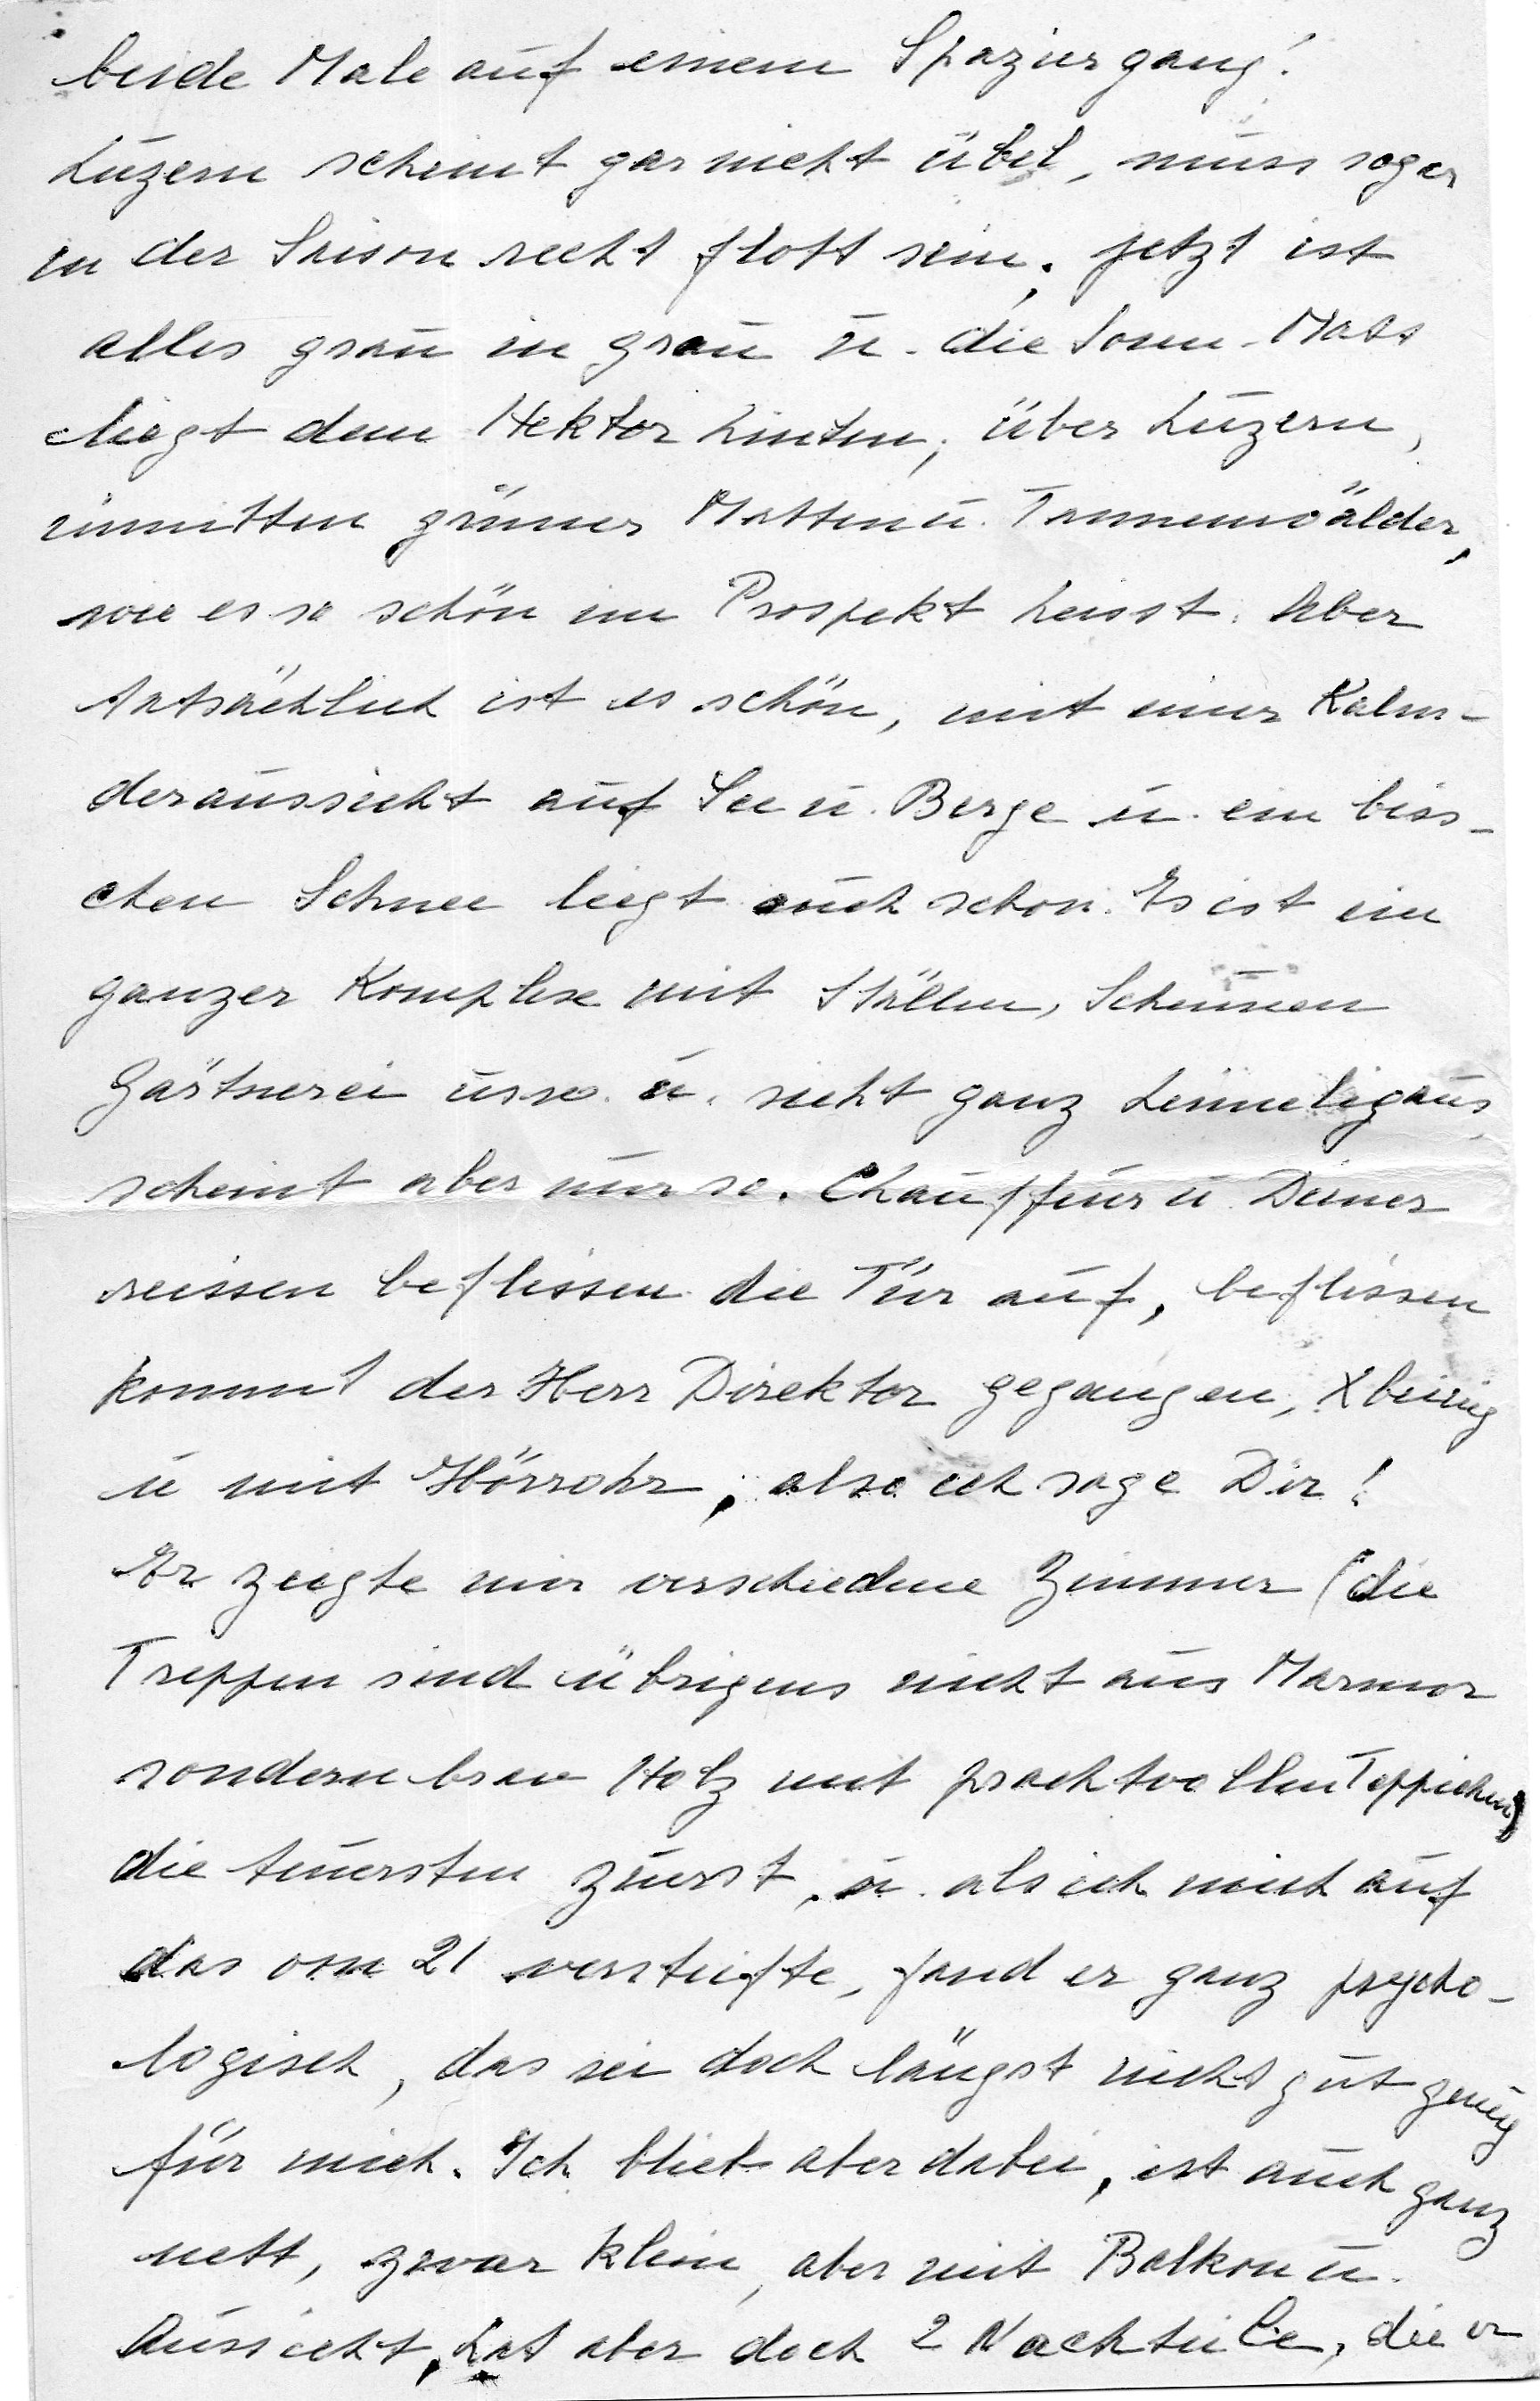 beide Male auf einem Spaziergang!
Luzern scheint gar nicht übel, muss sogar
in der Saison recht flott sein, jetzt ist
alles grau in grau u. die Sonn-Matt
liegt dem Hektor hinten, über Luzern,
inmitten grüner Matten u. Tannenwälder,
wie es so schön im Prospekt heisst. Aber
tatsächlich ist es schön, mit einer Kalen-
deraussicht auf See u. Berge u. ein biss-
chen Schnee liegt auch schon. Es ist ein
ganzer Komplex mit Ställen, Scheunen
Gärtnerei usw. u. sieht ganz heimelig aus,
scheint aber nur so. Chauffeur u. Diener
reissen beflissen die Tür auf, beflissen
kommt der Herr Direktor gegangen, Xbeinig
u mit Hörrohr, also ich sage Dir!
Er zeigte mir verschiedene Zimmer (die
Treppen sind übrigens nicht aus Marmor
sondern brav Holz mit prachtvollen Teppichen)
die teuersten zuerst, u. als ich mich auf
das von 21 versteifte, fand er ganz psycho-
logisch, das sei doch längst nicht gut genug
für mich. Ich blieb aber dabei, ist auch ganz
nett, zwar klein, aber mit Balkon u.
Aussicht, hat aber doch 2 Nachteile, die er